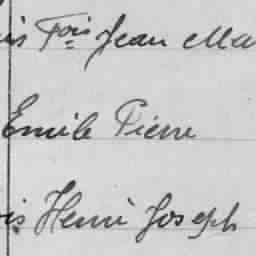 is Fois Jean Ma
Emile Pierre
is Henri Joseph